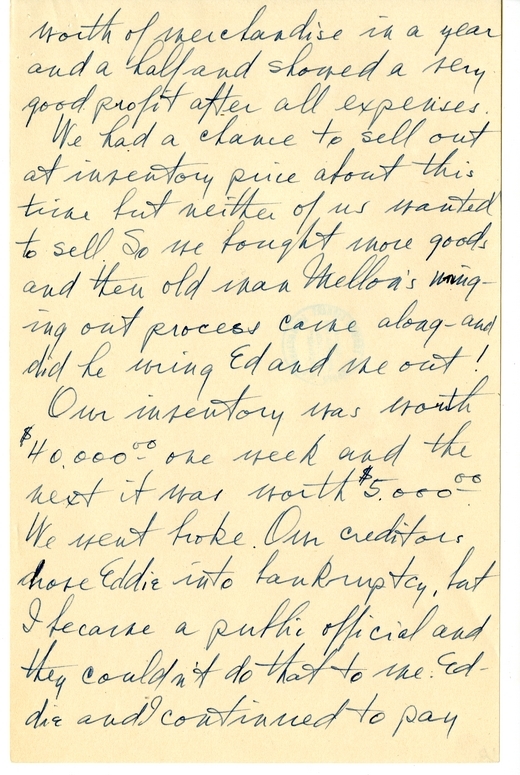 worth of merchandise in a year
and a half and showed a very
good profit after all expenses.
We had a chance to sell out
at inventory price about this
time but neither of us wanted
to sell. So we bought more goods
and then old man Mellon's wring-
ing out process came along - and
did he wring Ed and me out!
Our inventory was worth
$40,000.00 one week and the
next it was worth $5,000.00.
We went broke. Our creditors
drove Eddie into bankruptcy, but
I became a public official and
they couldn't do that to me. Ed-
die and I continued to pay